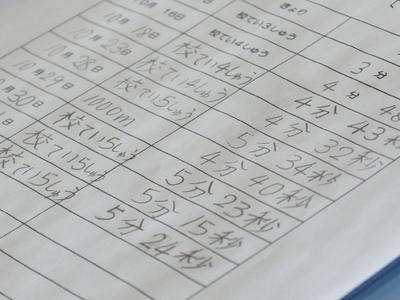 きょり
校てい3しゅう 3分
10月16日 校てい4しゅう 4分 48
10月18日 校てい4しゅう 4分 43秒
10月23日 校てい4しゅう 4分 32秒
10月28日 校てい5しゅう 5分 34秒
10月29日 1000m 4分 40秒
月30日 校てい5しゅう 5分 23秒
日 校てい5しゅう 5分 15秒
校てい5しゅう 5分 24秒